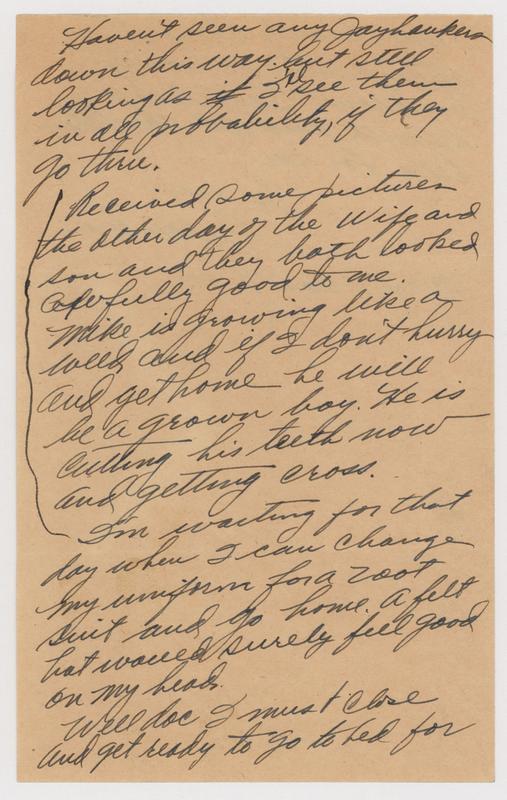 Haven't seen any Jayhawkers
down this way but still
looking as if I'd see them
in all probability, if they
go thru.
Received some pictures
the other day of the wife and
son and they both looked
awfully good to me.
Mike is growing like a
weed and if I don't hurry
and get home he will
be a grown boy. He is
cutting his teeth now
and getting cross.
I'm waiting for that
day when I can change
my uniform for a zoot
suit and go home. A felt
hat would surely feel good
on my head.
Well doc I must close
and get ready to go to bed for